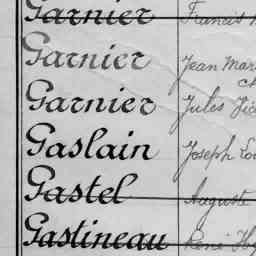 Garnier Francis
Garnier Jean Mar
Garnier Jules
Gaslain Joseph
Gastel Auguste
Gastineau René